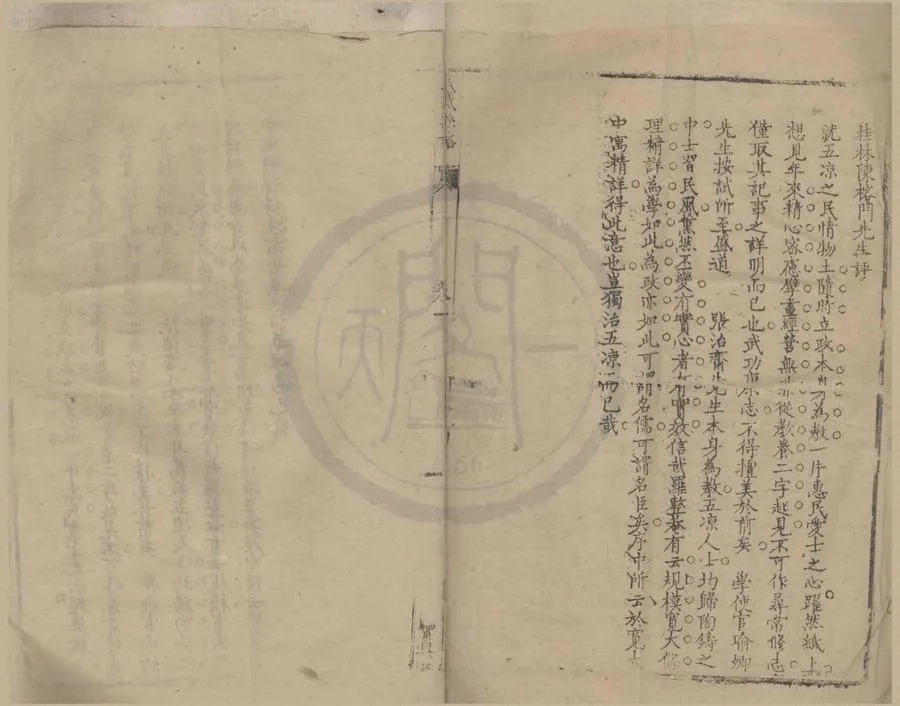 桂林陳榕門先生評
就五凉之民情物土隨時立政本身為教一片惠民愛士之心躍然紙上
想見年來精心密慮擘畫經營無非從教養二字起見不可作尋常修志
僅取其記事之詳明而已也武功志不得擅美於前矣 學使官瑜卿
先生按試所至盛道 張治齋先生本身為教五凉人士均歸陶鑄之
中士習民風薰然丕變有實心者有實效信哉羅整菴有云規模寬大條
理精詳為學如此為政亦如此可謂名儒可謂名臣矣序中所云於寬大
中寓精詳得此意也豈獨治五凉而已哉
卷一